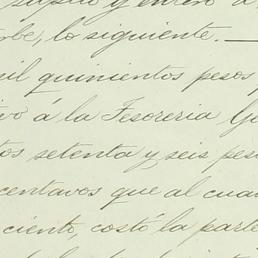 y entero a
be, lo siguiente.—
il quinientos pesos
vo á la Tesoreria Ge
tos setenta y seis pes
centavos que al cua
ciento, costó la parte